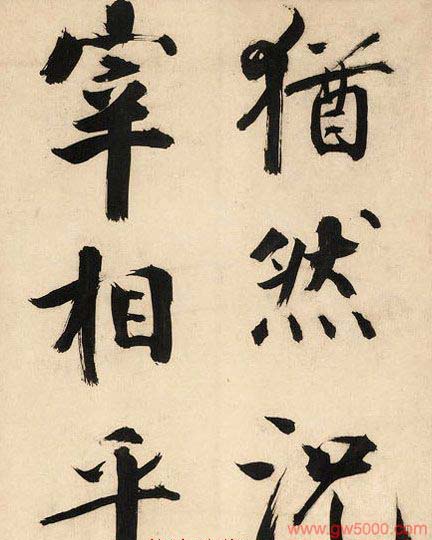 猶然況
宰相乎
www.gw5000.com